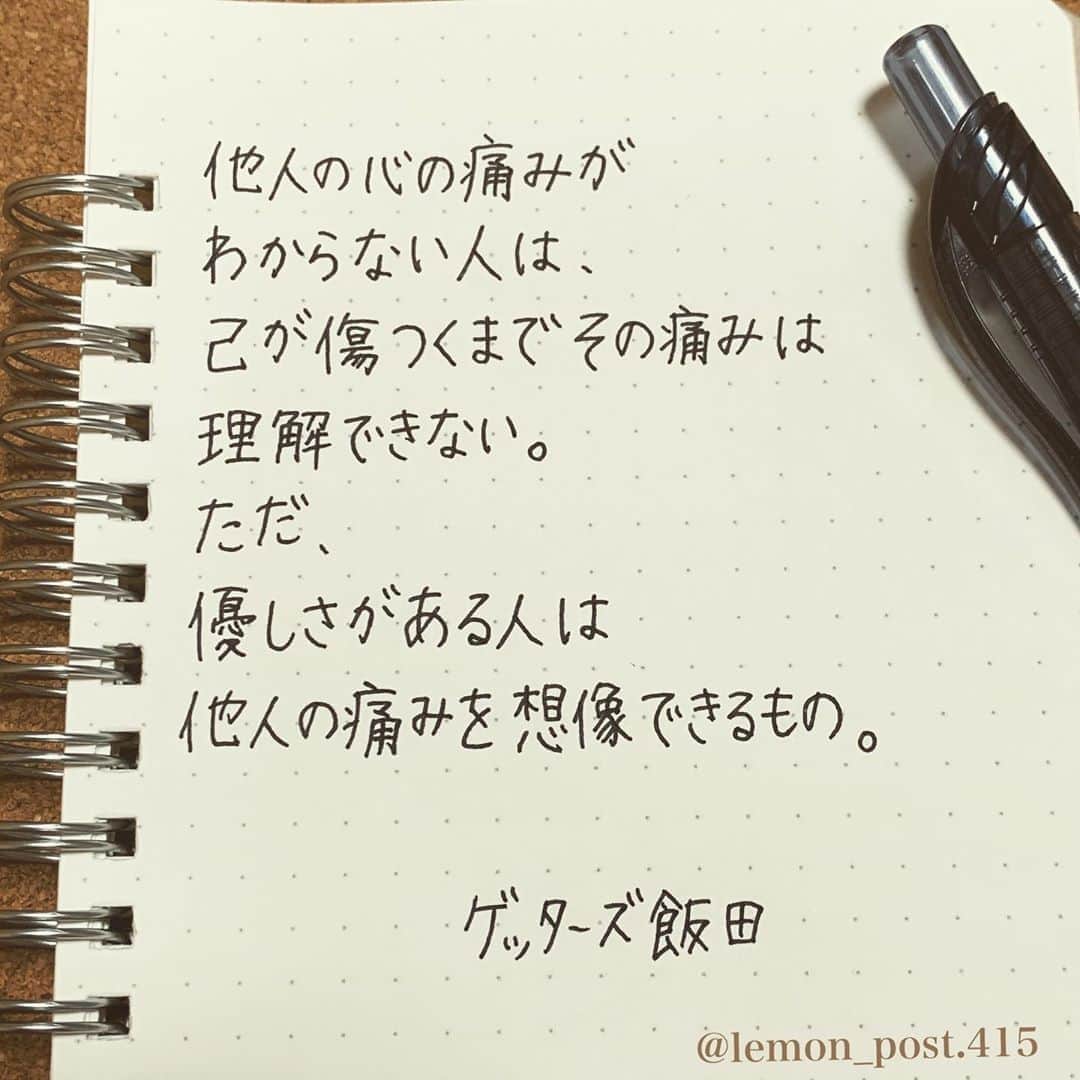 他人の心の痛みが
わからない人は、
己が傷つくまでその痛みは
理解できない。
ただ、
優しさがある人は
他人の痛みを想像できるもの。
ゲッターズ飯田
@lemon_post.415